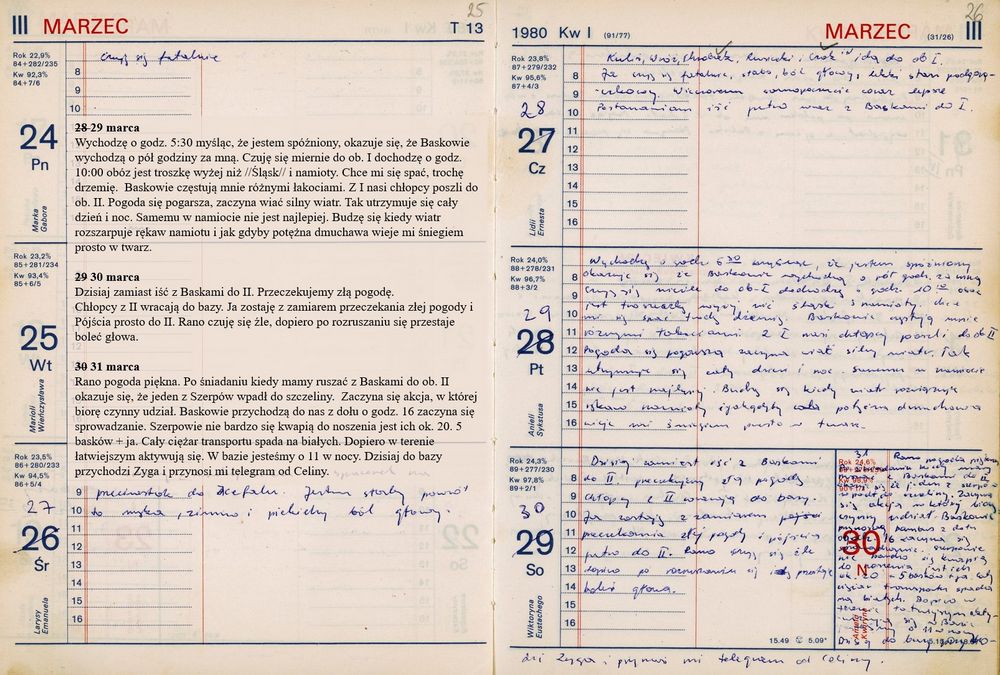 25
III MARZEC T 13
Rok 22,9%
84+282/235
Kw 92,3%
84+7/6
czuję się fatalnie
8
9
10
24
Pn
Marka
Gabora
28 29 marca
Wychodzę o godz. 5:30 myśląc, że jestem spóżniony, okazuje się, że Baskowie
wychodzą o pół godziny za mną. Czuję się miernie do ob. I dochodzę o godz.
10:00 obóz jest troszkę wyżej niż //Śląsk// i namioty. Chce mi się spać, trochę
drzemię. Baskowie częstują mnie różnymi łakociami. Z I nasi chłopcy poszli do
ob. II. Pogoda się pogarsza, zaczyna wiać silny wiatr. Tak utrzymuje się cały
dzień i noc. Samemu w namiocie nie jest najlepiej. Budzę się kiedy wiatr
rozszarpuje rękaw namiotu i jak gdyby potężna dmuchawa wieje mi śniegiem
prosto w twarz.
Rok 23,2%
85+281/234
Kw 93,4%
85+6/5
29 30 marca
Dzisiaj zamiast iść z Baskami do II. Przeczekujemy złą pogodę.
Chłopcy z II wracają do bazy. Ja zostaję z zamiarem przeczekania złej pogody i
Pójścia prosto do II. Rano czuję się żle, dopiero po rozruszaniu się przestaje
boleć głowa.
25
Wt
Marioli
Wieńczysława
30 31 marca
Rano pogoda piękna. Po śniadaniu kiedy mamy ruszać z Baskami do ob. II
okazuje się, że jeden z Szerpów wpadł do szczeliny. Zaczyna się akcja, w której
biorę czynny udział. Baskowie przychodzą do nas z dołu o godz. 16 zaczyna się
sprowadzanie. Szerpowie nie bardzo się kwapią do noszenia jest ich ok. 20. 5
basków + ja. Cały ciężar transportu spada na białych. Dopiero w terenie
łatwiejszym aktywują się. W bazie jesteśmy o 11 w nocy. Dzisiaj do bazy
przychodzi Zyga i przynosi mi telegram od Celiny.
Rok 23,5%
86+280/233
Kw 94,5%
86+5/4
27
26
Śr
Larysy
Emanuela
9
10
11
12
13
14
15
16
to męka, zimno i piekielny ból głowy.
26
1980 Kw I (91/77) MARZEC (31/26) III
Rok 23,8%
87+279/232
Kw 95,6%
87+4/3
28
27
Cz
Lidii
Ernesta
idą do ob I.
8 Ja czuję się fatalnie, słabo, ból głowy, lekki stan podgorą-
9 -czkowy. Wieczorem samopoczucie coraz lepsze
10 Postanawiam iść jutro wraz z Baskami do I.
11
12
13
14
15
16
Rok 24,0%
88+278/231
Kw 96,7%
88+3/2
29
28
Pt
Anieli
Sykstusa
Wychodzę o godz 5 30 myśląc, że jestem spóźniony
8 okazuje się że Baskowie wychodzą o pół godz. za mną
9 czuję się miernie do ob-I dochodzę o godz. 10 00 obóz
10 jest troszeczkę wyżej niż śląsk i namioty. Chce
11 mi się spać trochę drzemię. Baskowie częstują mnie
różnymi łakociami. Z I nasi chłopcy poszli do ob II
12 Pogoda się pogarsza zaczyna wiać silny wiatr. Tak
13 utrzymuje się cały dzień i noc. Samemu w namiocie
14 nie jest najlepiej. Budzę się kiedy wiatr rozszarpuje
15 rękaw namiotu i jakgdyby potężna dmuchawa
16 wieje mi śniegiem prosto w twarz.
Rok 24,3%
89+277/230
Kw 97,8%
89+2/1
30
29
So
Wiktoryna
Eustachego
Dzisiaj zamiast iść z Baskami
8 do II przeczekujemy złą pogodę
9 chłopcy z II wracają do bazy.
10 Ja zostaję z zamiarem
11 przeczekania złej pogody i pójścia
12 jutro do II. Rano czuję się źle
13 dopiero po rozruszaniu się przestaje
14 boleć głowa.
15
16
15.49 5.09
31
Rok 24,6%
30
N
Aniela
Kwiryna
Rano pogoda piękna
się akcja w której biorę
czynny udział. Baskowie
ok. 20 - 5 basków + ja. Cały
ciężar transportu spada
na białych. Dopiero w
o 11 w nocy
Dzisiaj do bazy przycho-
dzi Zyga i przynosi mi telegram od Celiny.